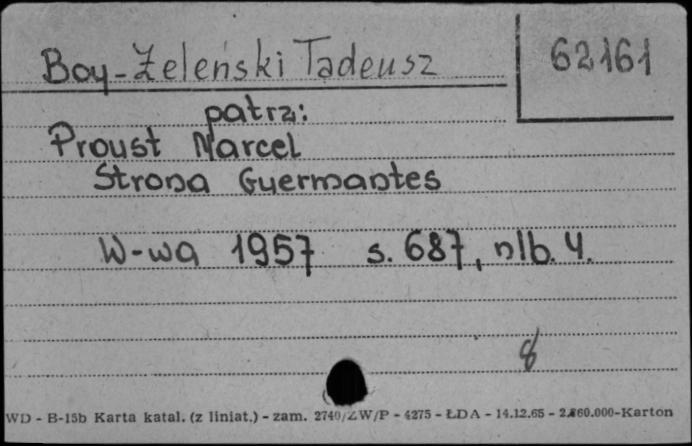 Boy-Żeleński Tadeusz
62161
patrz:
Proust Marcel
Strona Guermantes
W-wa 1957 s. 687, nlb. 4.
8
WD - B-15b Karta katal. (z liniat.) - zam. 2740/ZW/P - 4275 - ŁDA - 14.12.65 - 2.860.000-Karton